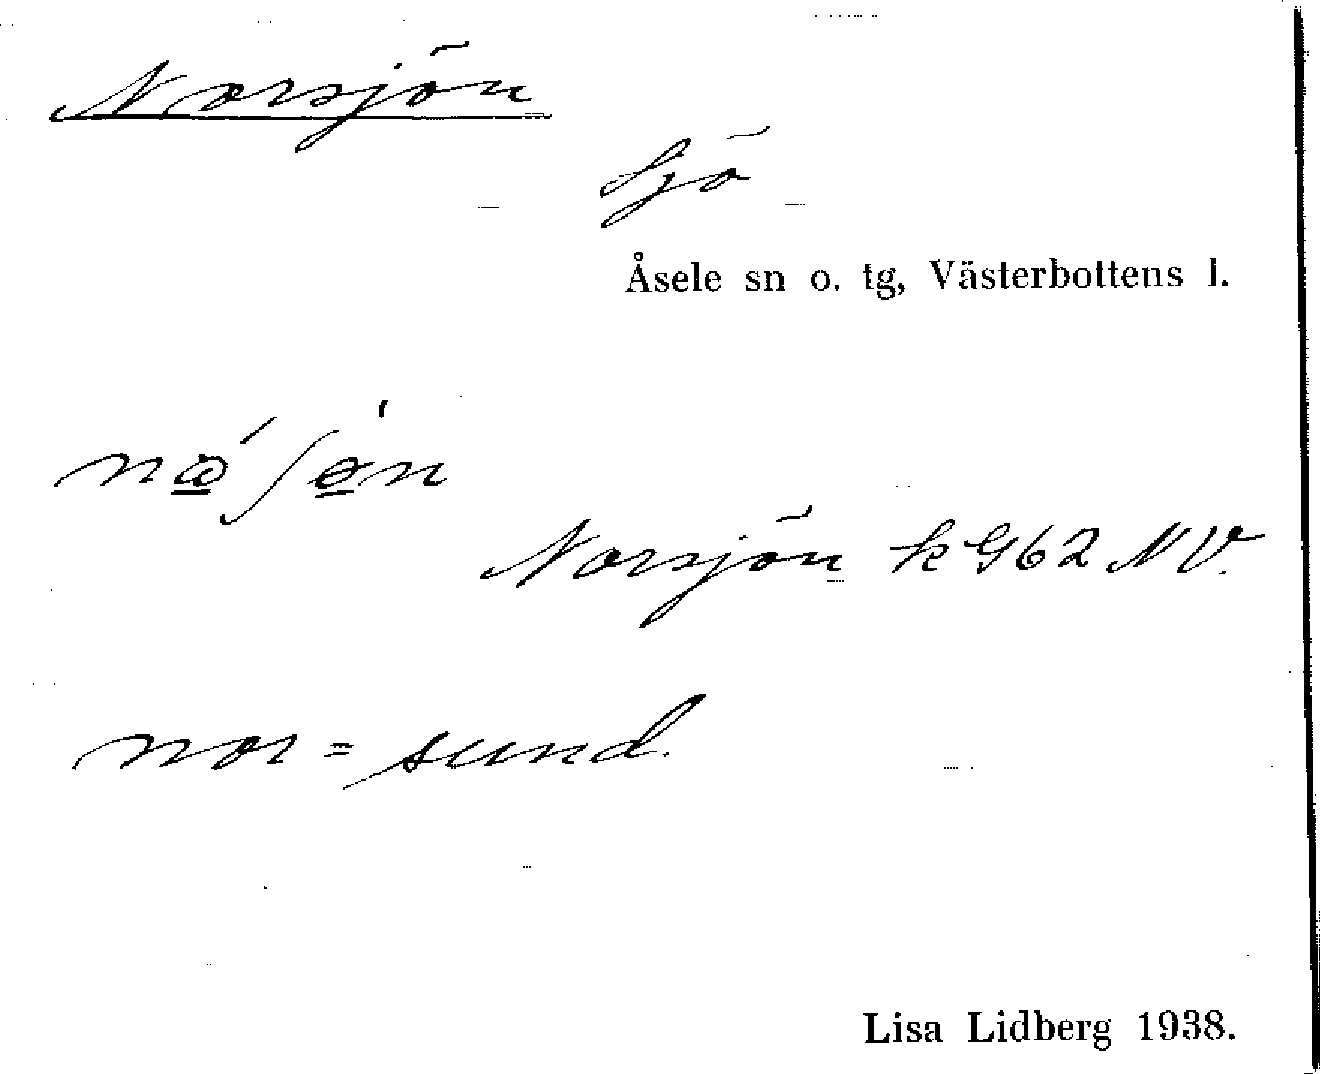 Norsjön
Sjö
Åsele sn o. tg, Västerbottens l.
Norsjön k G62 NV.
nor = sund.
Lisa Lidberg 1938.